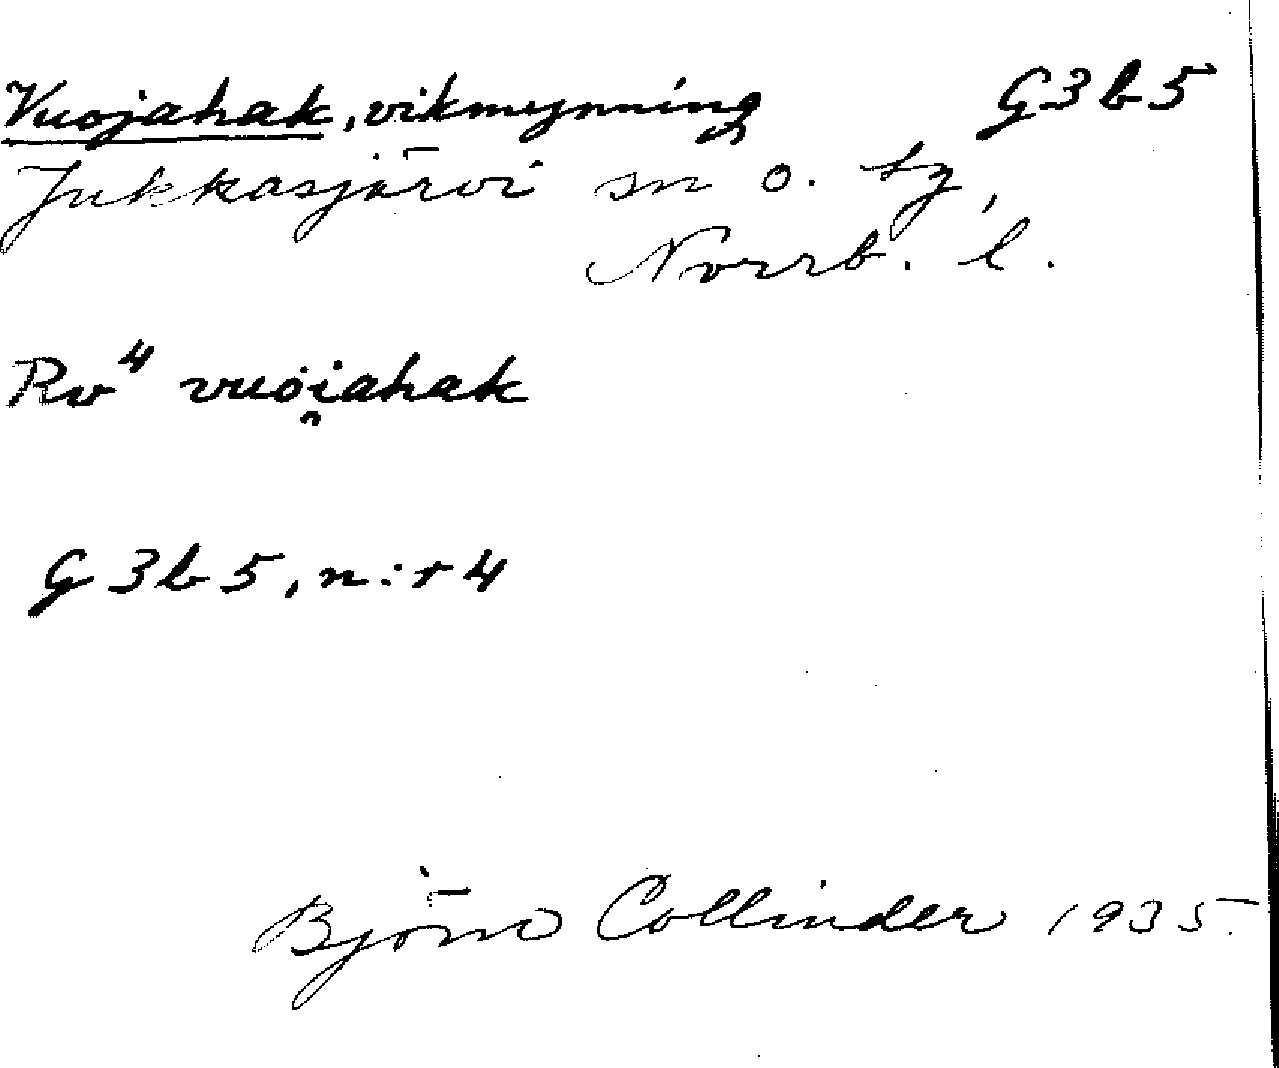 Vuojahak, vikmynning G3b5
Jukkasjärvi sn o. tg,
Norrb. l.
Rv⁴ vuoi̯ahak
G 3b5, n:r 4
Björn Collinder 1935.